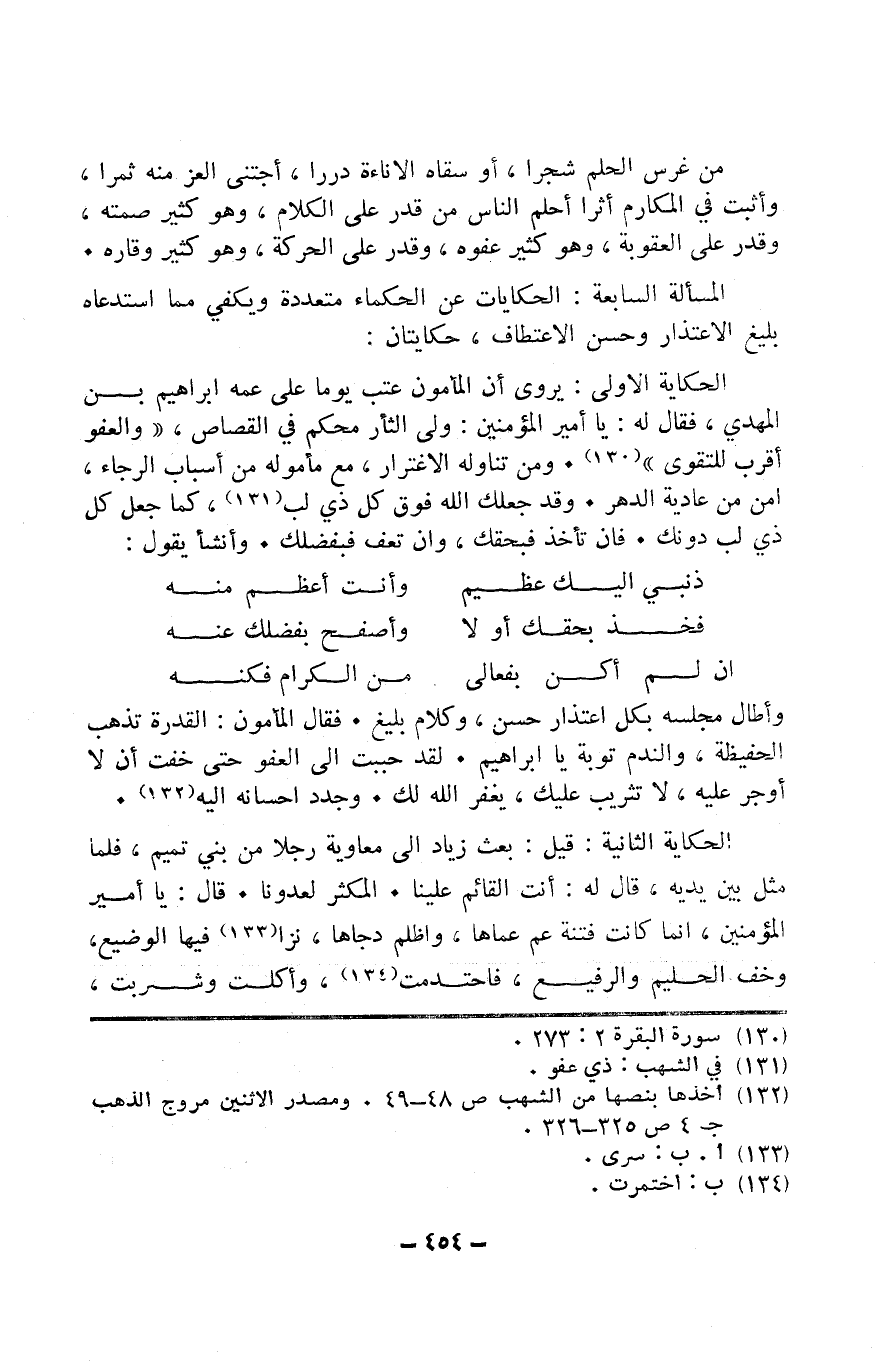 من غرس الحلم شجرا ، أو سقاه الاناءة دررا ، أجتنى العز منه ثمرا ،
وأثبت في المكارم أثرا أحلم الناس من قدر على الكلام ، وهو كثير صمته ،
وقدر على العقوبة ، وهو كثير عفوه ، وقدر على الحركة ، وهو كثير وقاره •
المسألة السابعة : الحكايات عن الحكماء متعددة ويكفي مما استدعاه
بليغ الاعتذار وحسن الاعتطاف ، حكايتان :
الحكاية الاولى : يروى أن المأمون عتب يوما على عمه ابراهيم بـــن
المهدي ، فقال له : يا أمير المؤمنين : ولى الثأر محكم في القصاص ، « والعفو
أقرب للتقوى »(١٣٠) • ومن تناوله الاغترار ، مع مأموله من أسباب الرجاء ،
امن من عادية الدهر • وقد جعلك الله فوق كل ذي لب(١٣١) ، كما جعل كل
ذي لب دونك • فان تأخذ فبحقك ، وان تعف فبفضلك • وأنشأ يقول :
ذنبــي اليــــك عظيــم وأنــت أعظــــم منــــه
فخـــــذ بحقــك أو لا وأصفــح بفضلك عنــــه
ان لــــم أكــــن بفعالى مــن الــكرام فكنـــــه
وأطال مجلسه بكل اعتذار حسن ، وكلام بليغ • فقال المأمون : القدرة تذهب
الحفيظة ، والندم توبة يا ابراهيم • لقد حببت الى العفو حتى خفت أن لا
أوجر عليه ، لا تثريب عليك ، يغفر الله لك • وجدد احسانه اليه(١٣٢) •
الحكاية الثانية : قيل : بعث زياد الى معاوية رجلا من بني تميم ، فلما
مثل بين يديه ، قال له : أنت القائم علينا • المكثر لعدونا • قال : يا أمــير
المؤمنين ، انما كانت فتنة عم عماها ، واظلم دجاها ، نزا(١٣٣) فيها الوضيع،
وخف الحــليم والرفيـــع ، فاحتــدمت(١٣٤) ، وأكلــت وشـــربت ،
(١٣٠) سورة البقرة ٢ : ٢٧٣ .
(١٣١) في الشهب : ذي عفو .
(١٣٢) أخذها بنصها من الشهب ص ٤٨–٤٩ . ومصدر الاثنين مروج الذهب
جـ ٤ ص ٣٢٥–٣٢٦ .
(١٣٣) أ . ب : سرى .
(١٣٤) ب : اختمرت .
– ٤٥٤ –